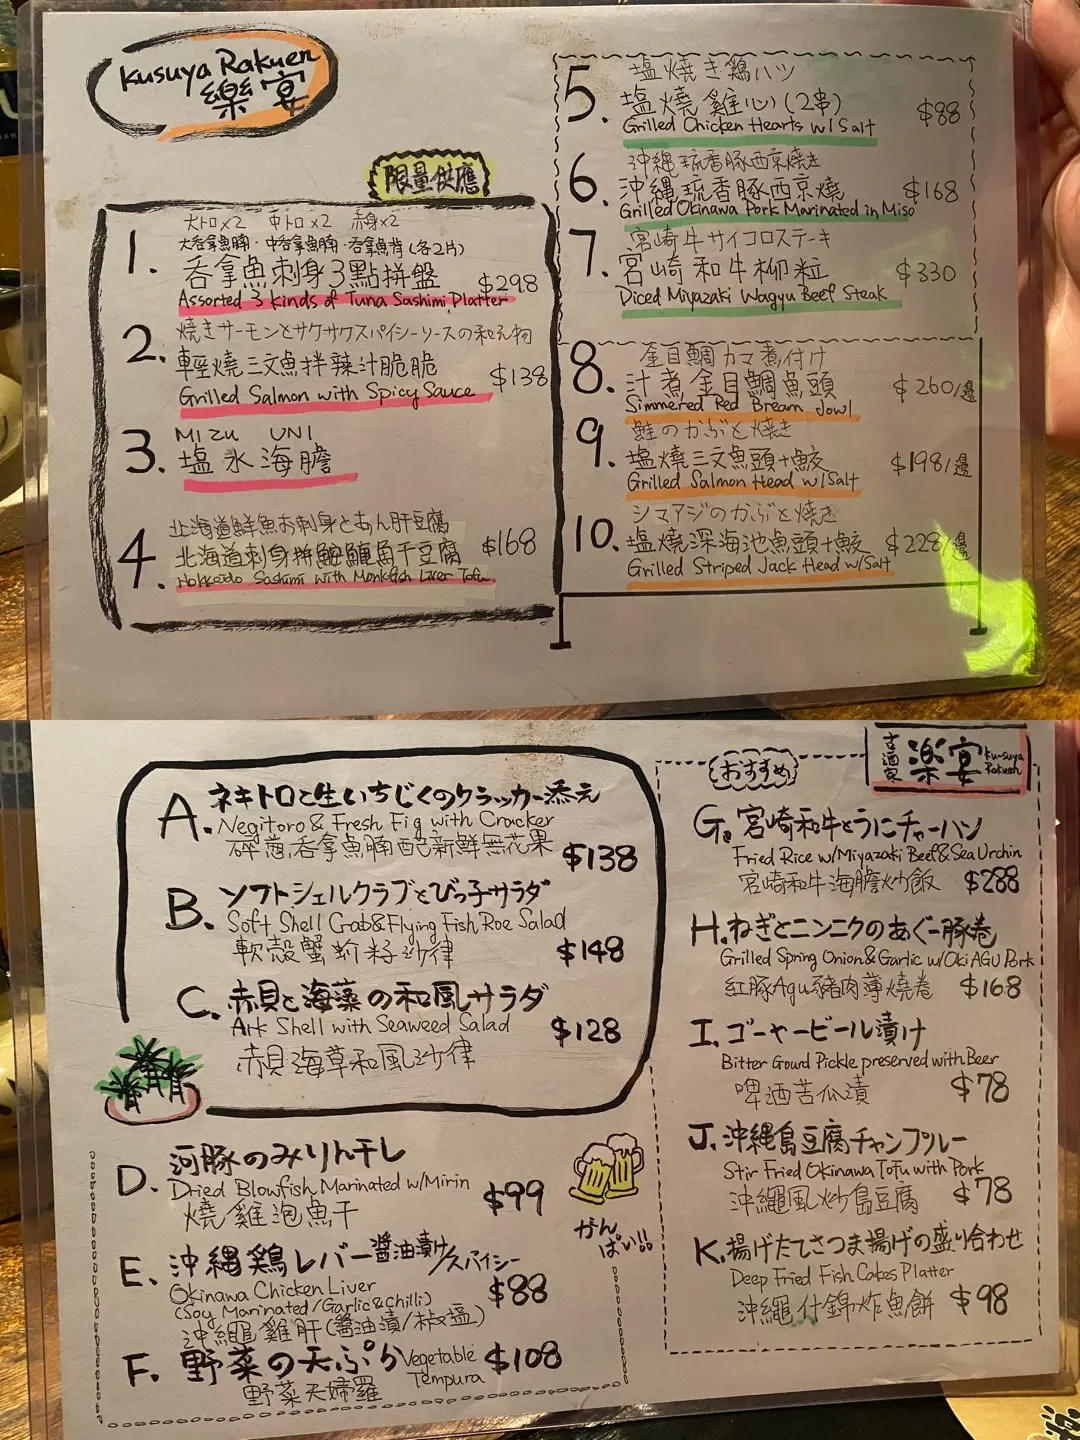 Kusuya Rakuen
樂宴
限量供應
大トロx2 中トロx2 赤身x2
1. 大吞拿魚腩・中吞拿魚腩・吞拿魚背(各2片)
吞拿魚刺身3點拼盤 $298
Assorted 3 kinds of Tuna Sashimi Platter
焼きサーモンとサクサクスパイシーソースの和え物
2. 輕燒三文魚拌辣汁脆脆 $138
Grilled Salmon with Spicy Sauce
MIZU UNI
3. 塩水海膽
北海道鮮魚お刺身とあん肝豆腐
4. 北海道刺身拼鮟鱇魚干豆腐 $168
Hokkaido Sashimi with Monkfish Liver Tofu
塩焼き鶏ハツ
5. 塩燒雞心(2串) $88
Grilled Chicken Hearts w/Salt
沖縄琉香豚西京焼き
6. 沖縄琉香豚西京燒 $168
Grilled Okinawa Pork Marinated in Miso
宮崎牛サイコロステーキ
7. 宮崎和牛柳粒 $330
Diced Miyazaki Wagyu Beef Steak
金目鯛カマ煮付け
8. 汁煮金目鯛魚頭 $260/邊
Simmered Red Bream Jowl
鮭のかぶと焼き
9. 塩燒三文魚頭+鮫 $198/邊
Grilled Salmon Head w/Salt
シマアジのかぶと焼き
10. 塩燒深海池魚頭+鮫 $228/邊
Grilled Striped Jack Head w/Salt
A. ネギトロと生いちじくのクラッカー添え
Negitoro & Fresh Fig with Cracker
碎蔥吞拿魚腩配新鮮無花果 $138
B. ソフトシェルクラブとびっ子サラダ
Soft Shell Crab&Flying Fish Roe Salad
軟殼蟹魪籽沙律 $148
C. 赤貝と海藻の和風サラダ
Ark Shell with Seaweed Salad $128
赤貝海草和風沙律
D. 河豚のみりん干し
Dried Blowfish Marinated w/Mirin $99
燒雞泡魚干
E. 沖縄鶏レバー醤油漬け/スパイシー
Okinawa Chicken Liver $88
(Soy Marinated/Garlic&Chilli)
沖繩雞肝(醬油漬/椒塩)
F. 野菜の天ぷら Vegetable Tempura $108
野菜天婦羅
かんぱい!!
古酒家 楽宴 Ku-suya Rakuen
おすすめ
G. 宮崎和牛とうにチャーハン
Fried Rice w/Miyazaki Beef&Sea Urchin
宮崎和牛海膽炒飯 $288
H. ねぎとニンニクのあぐー豚巻
Grilled Spring Onion&Garlic w/Oki AGU Pork
紅豚Agu豬肉薄燒卷 $168
I. ゴーヤービール漬け
Bitter Gourd Pickle preserved with Beer
啤酒苦瓜漬 $78
J. 沖縄島豆腐チャンプルー
Stir Fried Okinawa Tofu with Pork
沖繩風炒島豆腐 $78
K. 揚げたてさつま揚げの盛り合わせ
Deep Fried Fish Cakes Platter
沖繩什錦炸魚餅 $98